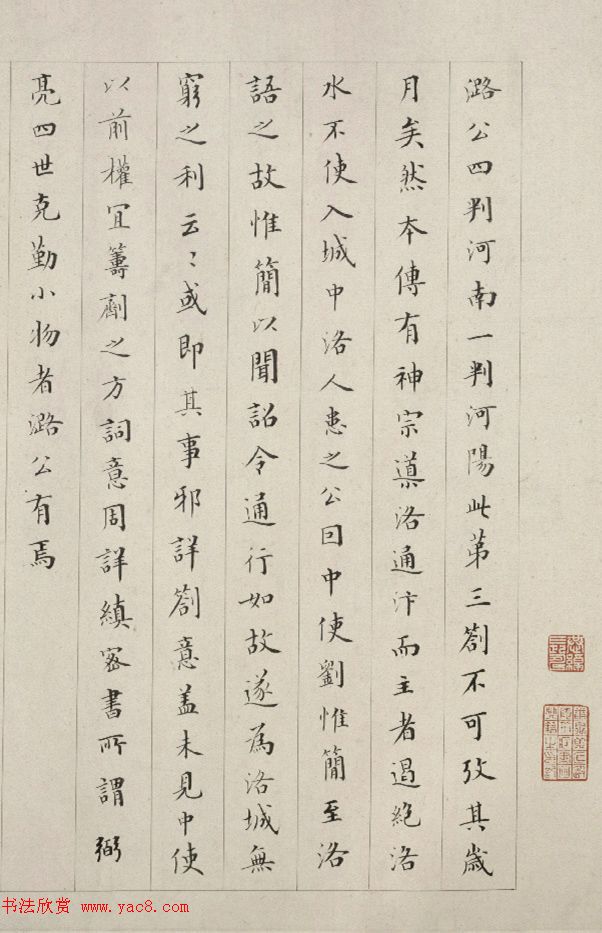 潞公四判河南一判河陽此第三劄不可攷其歲
月矣然本傳有神宗導洛通汴而主者遏絕洛
水不使入城中洛人患之公因中使劉惟簡至洛
語之故惟簡以聞詔令通行如故遂為洛城無
窮之利云〻或即其事邪詳劄意蓋未見中使
以前權宜籌劑之方詞意周詳縝密書所謂弼
亮四世克勤小物者潞公有焉
书法欣赏 www.yac8.com